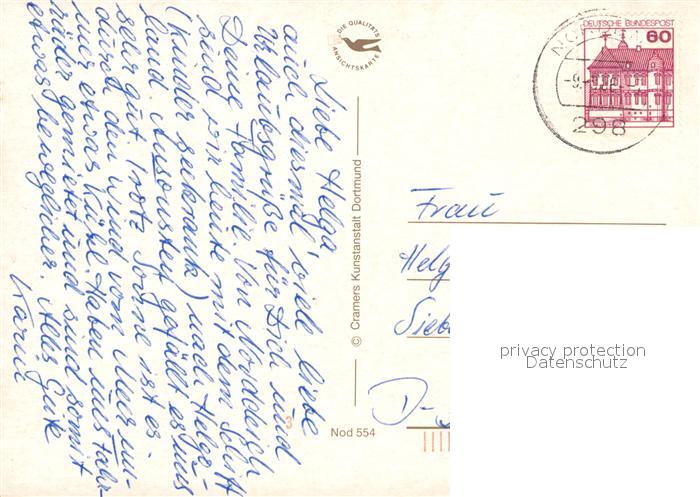 Liebe Helga
auch diesmal viele liebe
Urlaubsgrüße für Dich und
Deine Familie. Von Norddeich
sind wir heute mit dem Schiff
(Kinder seekrank) nach Helgo-
land. Ansonsten gefällt es uns
sehr gut. Trotz Sonne ist es
durch den Wind vom Meer im-
mer etwas kühl. Haben uns Fahr-
räder gemietet und sind somit
etwas beweglicher. Alles Gute
Karin
DIE QUALITÄTS
ANSICHTSKARTE
© Cramers Kunstanstalt Dortmund
Nod 554
3
DEUTSCHE BUNDESPOST
60
298
Frau
Helg
Sieb
D-
privacy protection
Datenschutz